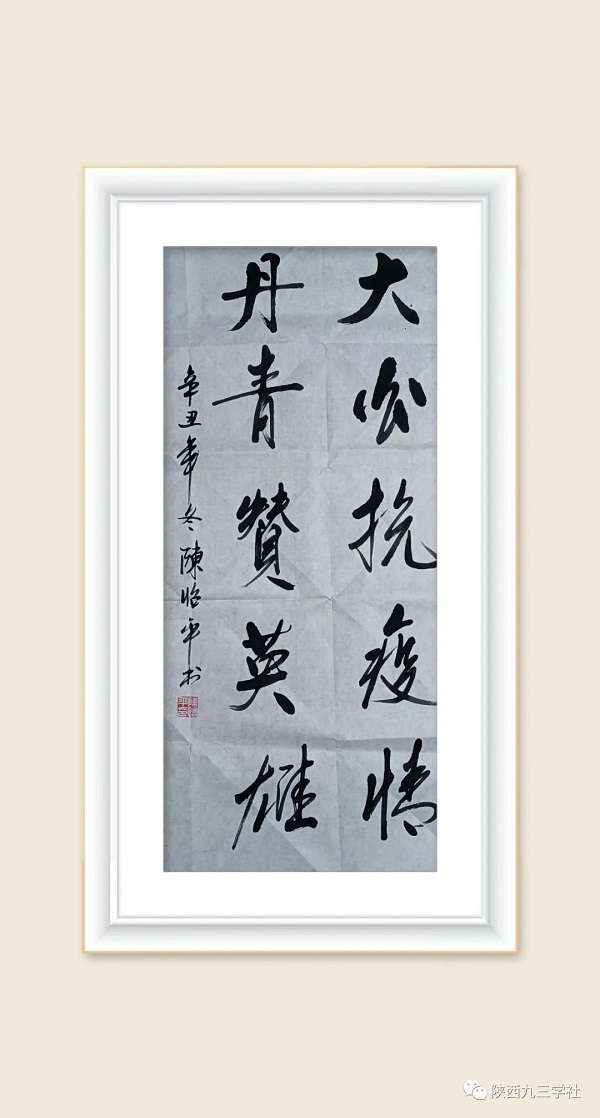 大公抗疫情
丹青贊英雄
辛丑年冬陳昭平书
陕西九三学社